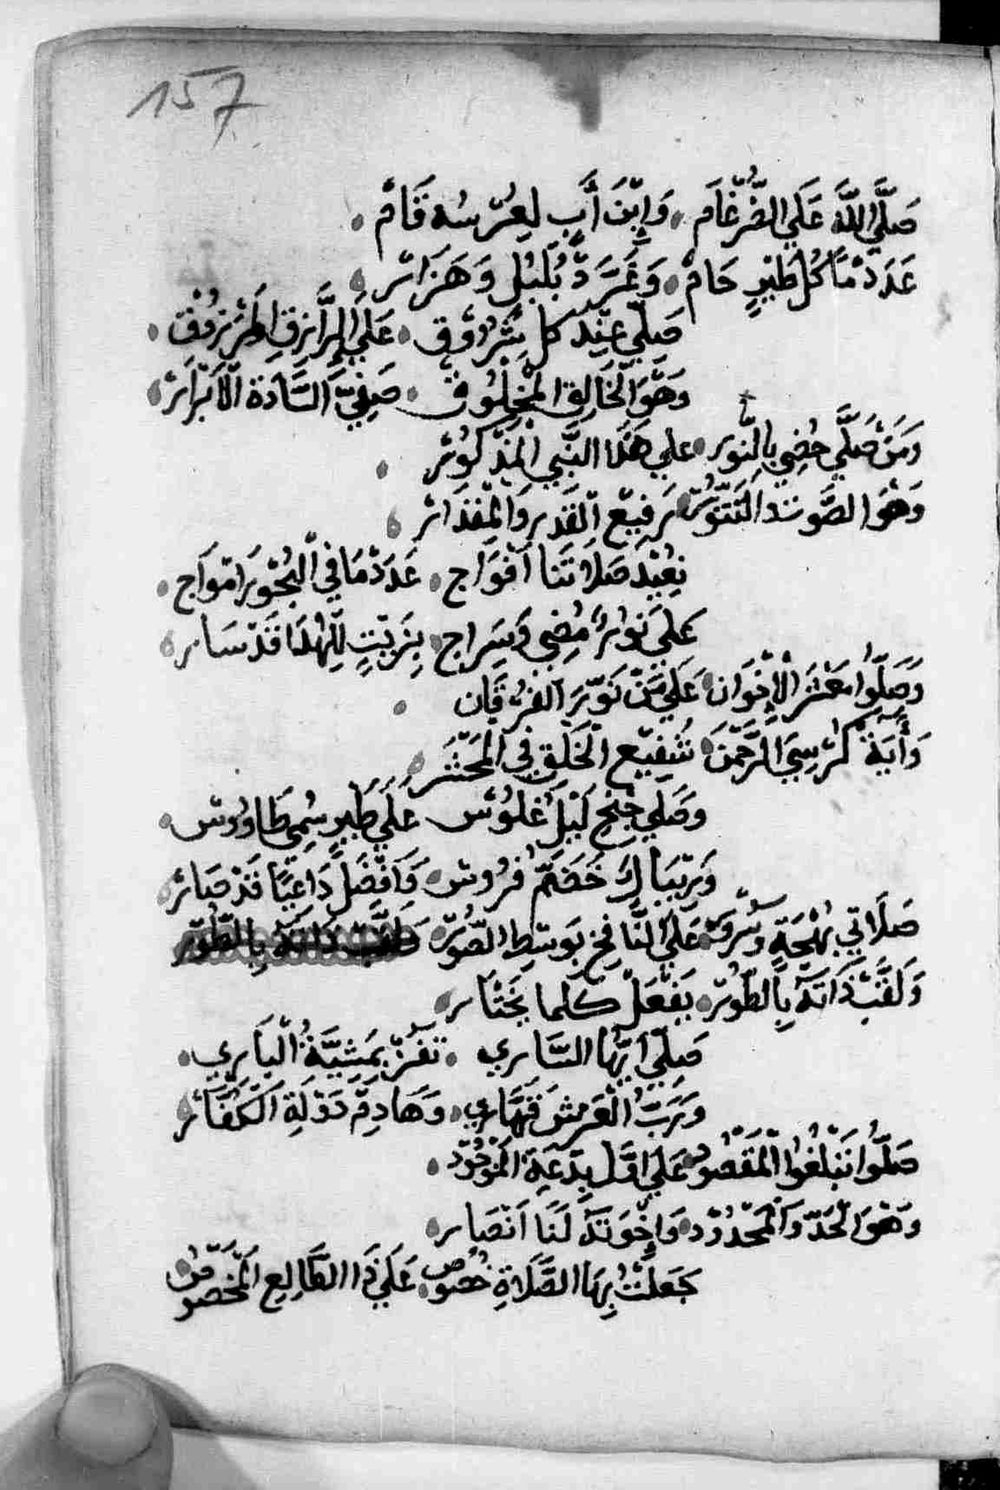 157
صَلَّي اللَّهُ عَلَي الضُّرْغَامْ . وَابْنَ أَبٍ لِعِرْسُه قَامْ .
عَدَدْ مَا كُلْ طَيْرٍ حَامْ . وَغَرَدْ بُلْبُلْ وَهَزَارْ
صَلِّي عِنْدَ كُلِ شُرُوقْ . عَلَي الرَّازِقِ المَرْزُوقْ .
وَهْوَ الْخَالِقِ الْمَخْلُوقْ . صَفِيَّ السَّادَة الْأَبْرَارْ
وَمَنْ صَلَّي حُضِي بِالنُّورِ . علي هَذَا النَّبِي الْمَذْكُورْ .
وَهْوَ الصَّوْت رَفِيْعِ الْقَدْرِ وَالْمِقْدَارْ
نِعِيْدْ صَلَاتَنَا أَفْوَاجْ . عَدَدْ مَا فِي الْبُحُوْرَ امْوَاجْ .
عَلَي نُوْرٌ مُضِي وَسِرَاجْ . بِزَيْتٍ لِلْهُدَا قَدْ سَارْ
وَصَلُّوا مَعْشَرَ الْإِخْوَانْ . عَلَي مَنْ نَوَّرَ الْفُرْقَانْ .
وَأَيَةْ كُرْسِيَ الرَّحْمَنْ . شَفِيْعِ الْخَلْقِ فِي الْمَحْشَرْ
وصَلِي جِنْحِ لَيْلْ غَلُوسْ عَلَي طَيْرٍ سُمِي طَاوُوسْ .
وَرَبٍّ بَارِكْ خَضَمْ فُرُوسْ . وَأَفْضَلْ دَاعِيًا قَدْ صَارْ
صَلَاتِي بُهْجَةٍ وَسُرُوْرْ . عَلَي النَّافِخِ بَوسْطِ الصُّوْرْ
وَلَقَّبْ ذَاتَهُ بِالطُّوْرْ . يَفْعَلْ كلما يَخْتَارْ
صَلِّي أَيُّهَا السَّارِي . تَفُزْ بِمَشِيَّةْ الْبَارِي .
وَرَبُّ الْعَرْشَ قَهَّارِي . وَهَادِمْ دَوْلَةِ الْكُفَّارْ
صَلُّوا تَبْلُغُوا الْمَقْصُودْ . عَلَي اوَّلْ بِدْعَةِ الْمَوْجُودْ .
وَهْوَ الْحَدّ وَالْمَحْدُوْدْ . وَاخْوَتَهُ لَنَا أَنْصَارْ
جَعَلْتُ بِهَا الصَّلَاةِ خُصُوصْ . عَلَي ذَا الطَّالِعِ الْمَخْصُوصْ